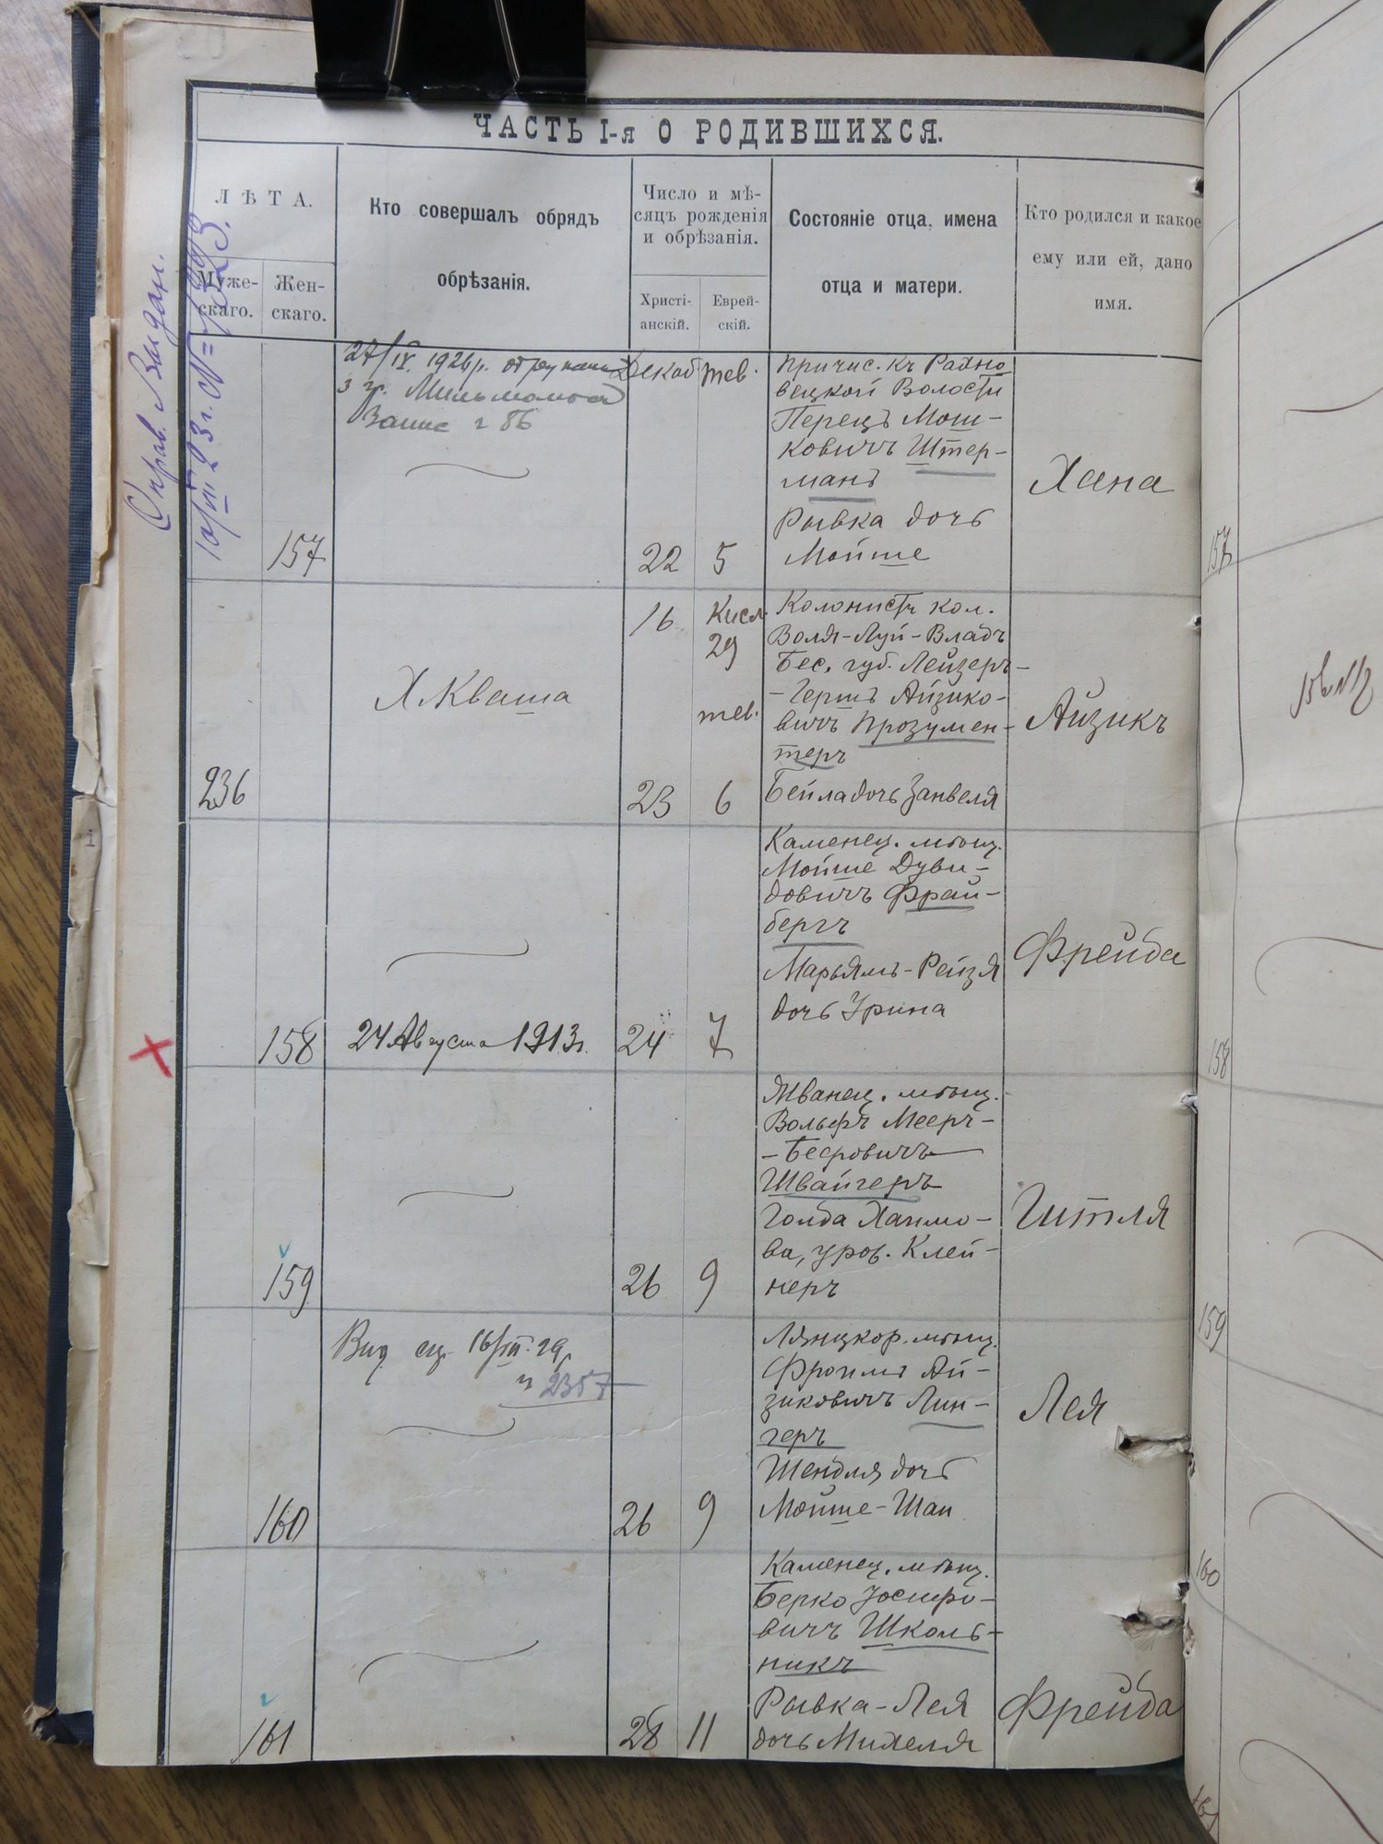 ЧАСТЬ I-я О РОДИВШИХСЯ.
ЛѢТА.
Муже-
скаго.
Жен-
скаго.
Кто совершалъ обрядъ
обрѣзанія.
Число и мѣ-
сяцъ рожденія
и обрѣзанія.
Христі-
анскій.
Еврей-
скій.
Состояніе отца, имена
отца и матери.
Кто родился и какое
ему или ей, дано
имя.
Справ. Выдан.
10/III 23 г. №
157
27/IX 1926 р.
з гр.
Запис г 86
Декаб
22
тев.
5
Причис. къ Рахно
вецкой Волости
Перецъ Мош-
ковичъ Штер-
манъ
Рывка дочь
Мойше
Хана
157
236
Х. Кваша
16
23
Кисл.
29
тев.
6
Колонистъ кол.
Воля-Луй-Владъ
Бес. губ. Лейзеръ-
-Гершъ Айзико-
вичъ Прозумен-
теръ
Бейла дочь Занвеля
Айзикъ
158
24 Августа 1913 г.
24
7
Каменец. мѣщ.
Мойше Дуви-
довичъ Фрай-
бергъ
Марьямъ-Рейзя
дочь Урина
Фрейда
158
159
26
9
Жванец. мѣщ.
Вольфъ Мееръ-
-Беровичъ
Швайгеръ
Голда Хаимо-
ва, урож. Клей-
неръ
Гитля
159
160
16/III 29
2357
26
9
Лянцкор. мѣщ.
Фроимъ Ай-
зиковичъ Лин-
геръ
Шендля дочь
Мойше-Шаи
Лея
160
161
28
11
Каменец. мѣщ.
Берко Іосифо-
вичъ Школь-
никъ
Рывка-Лея
дочь Михеля
Фрейда
161